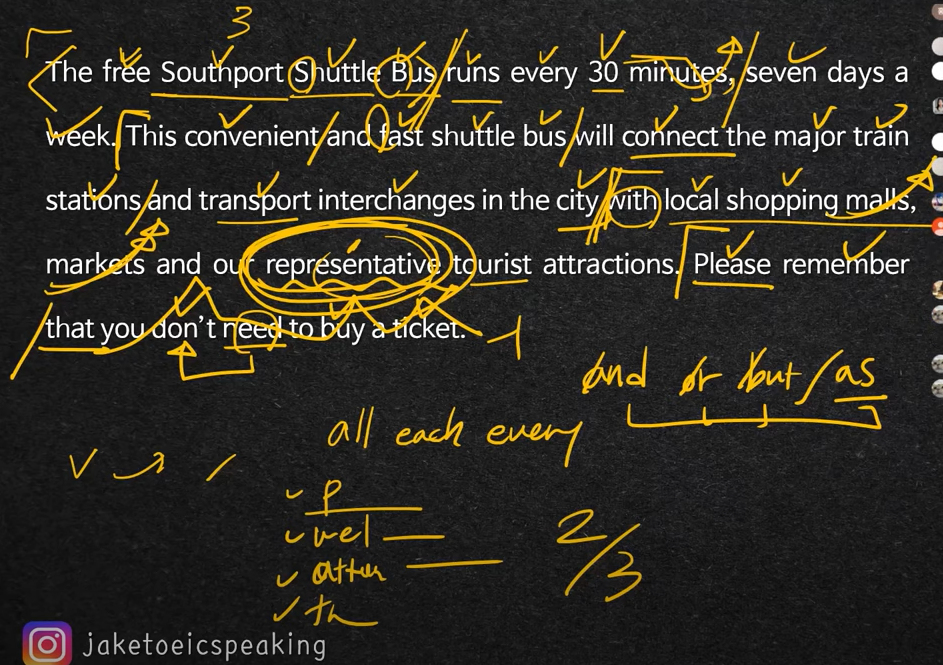 3
The free Southport Shuttle Bus runs every 30 minutes, seven days a
week. This convenient and fast shuttle bus will connect the major train
stations and transport interchanges in the city with local shopping malls,
markets and our representative tourist attractions. Please remember
that you don't need to buy a ticket.
and or but / as
all each every
P
2/3
th
jaketoeicspeaking